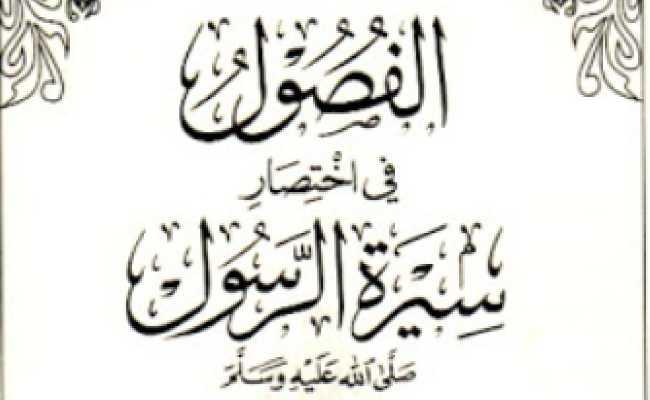 الفُصُوْلُ
في اخْتِصَارِ
سِيْرَةِ الرَّسُوْلِ
صَلَّى اللهُ عَلَيْهِ وَسَلَّمَ